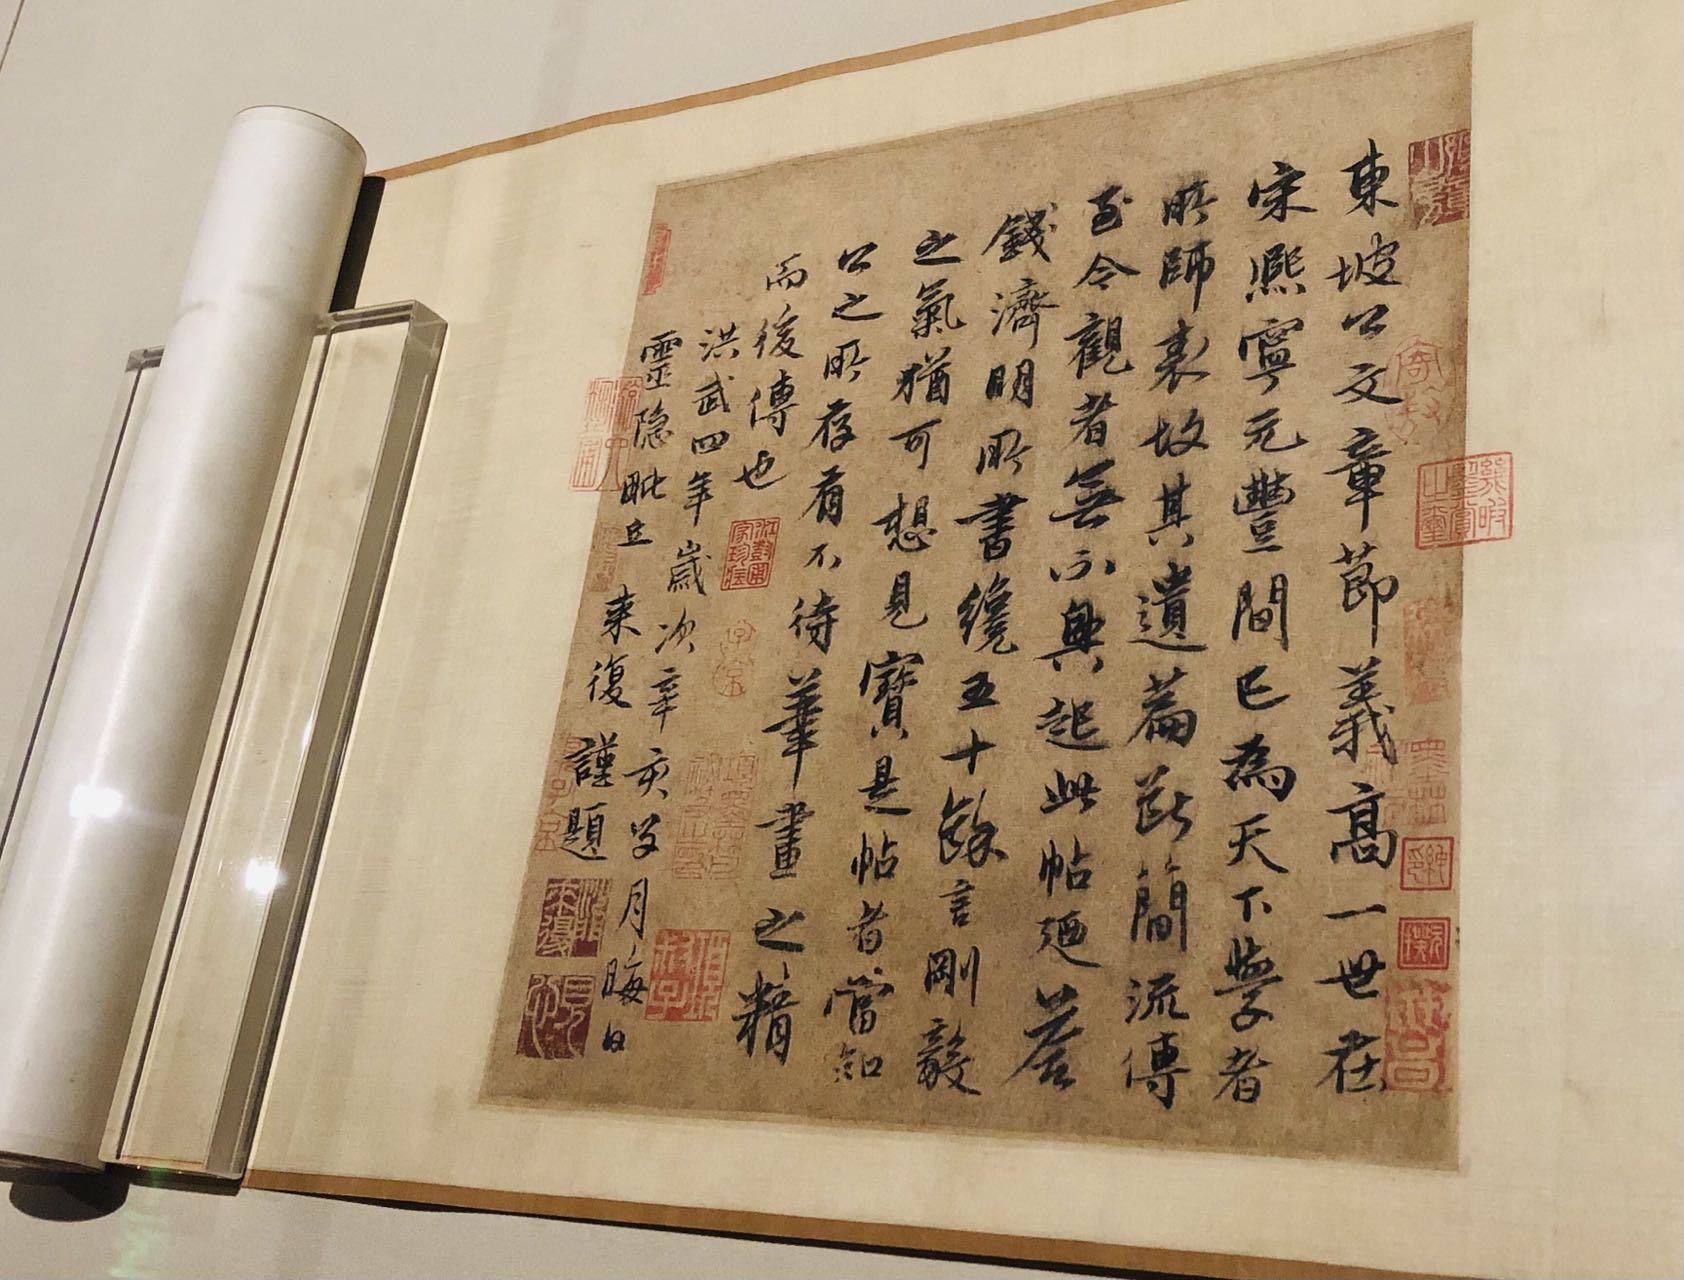 東坡公文章節義高一世在
宋熙寧元豐間已為天下學者
所師表故其遺篇斷簡流傳
至今觀者無不興起此帖廼荅
錢濟明所書纔五十餘言剛毅
之氣猶可想見寶是帖者當知
公之所存有不待筆畫之精
而後傳也
洪武四年歲次辛亥
月晦日
靈隱毗丘来復謹題